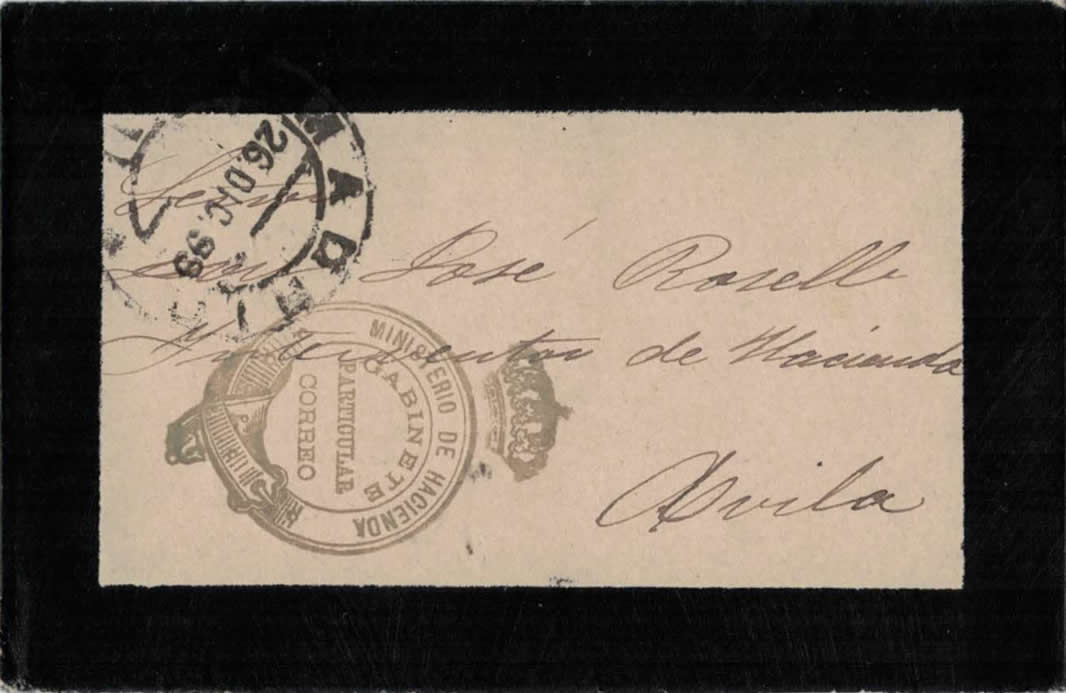 MADRID
26.DIC.98
Señor
Don José Rosell
Interventor de Hacienda
Avila
MINISTERIO DE HACIENDA
GABINETE
PARTICULAR
CORREO